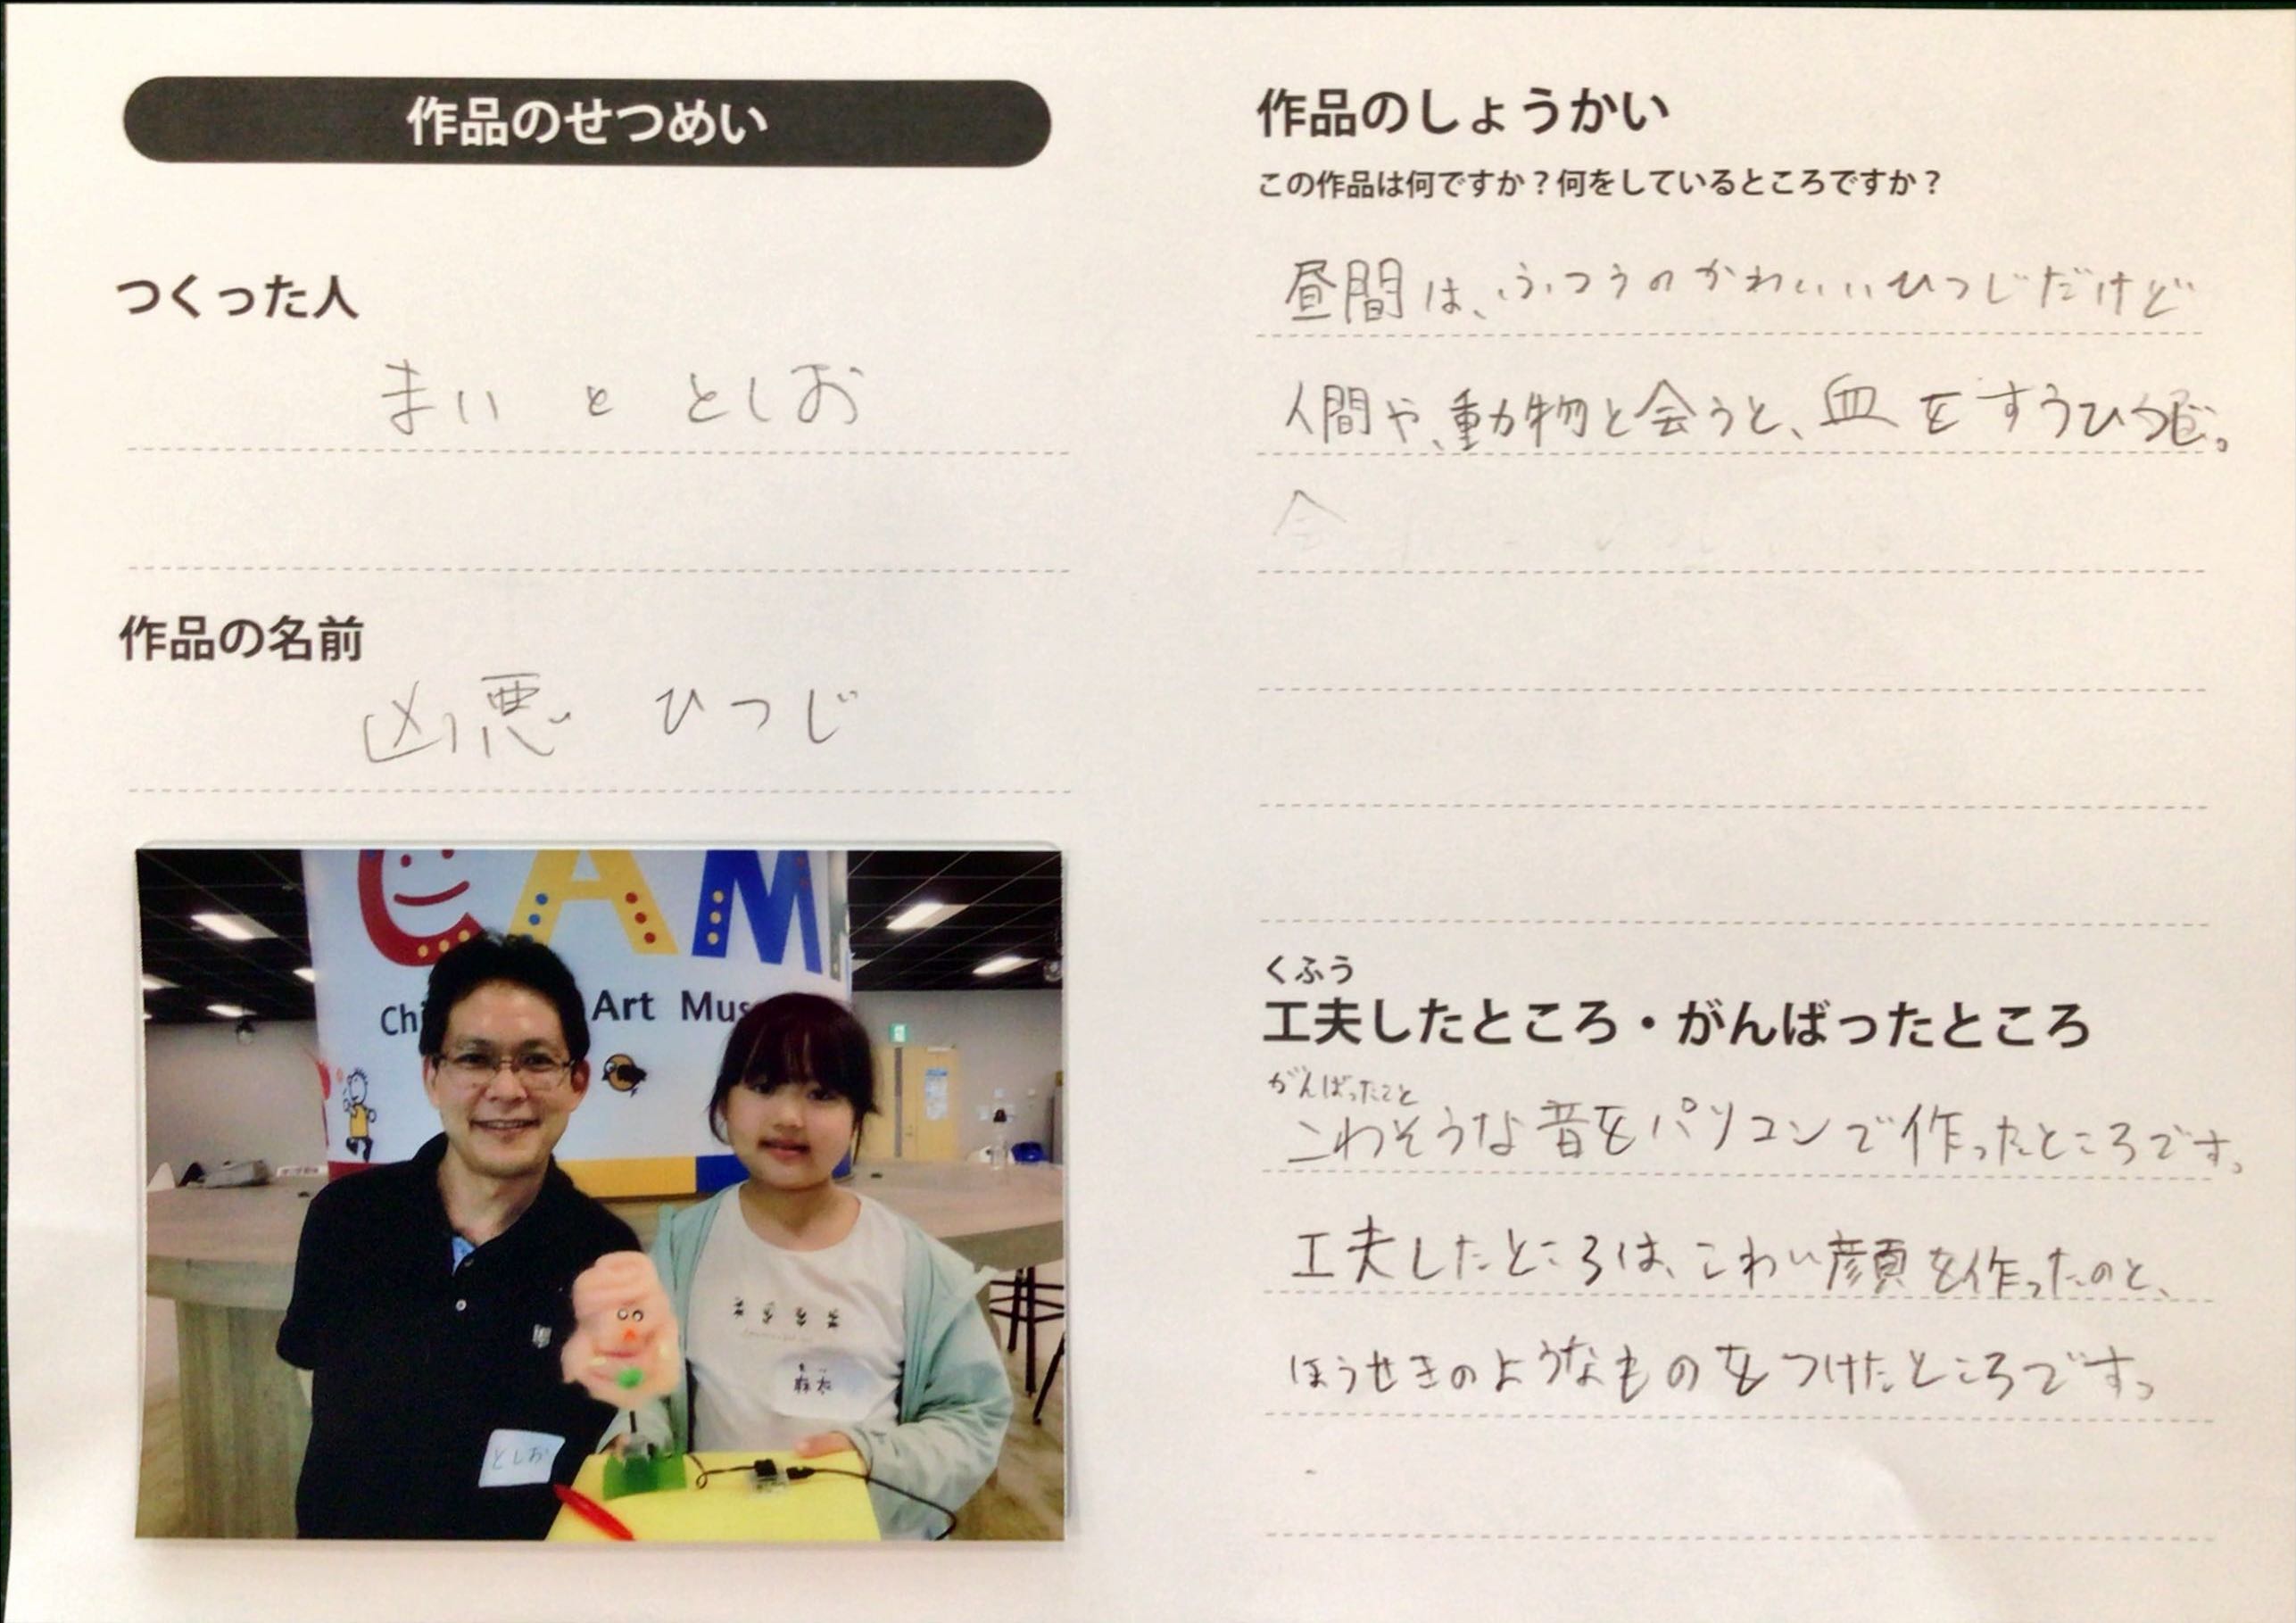 作品のせつめい
つくった人
まい と としお
作品の名前
凶悪 ひつじ
CAM
Chi Art Mus
としお
作品のしょうかい
この作品は何ですか？何をしているところですか？
昼間は、ふつうのかわいいひつじだけど
人間や、動物と会うと、血をすうひつじ。
会
くふう
工夫したところ・がんばったところ
がんばったこと
こわそうな音をパソコンで作ったところです。
工夫したところは、こわい顔を作ったのと、
ほうせきのようなものをつけたところです。